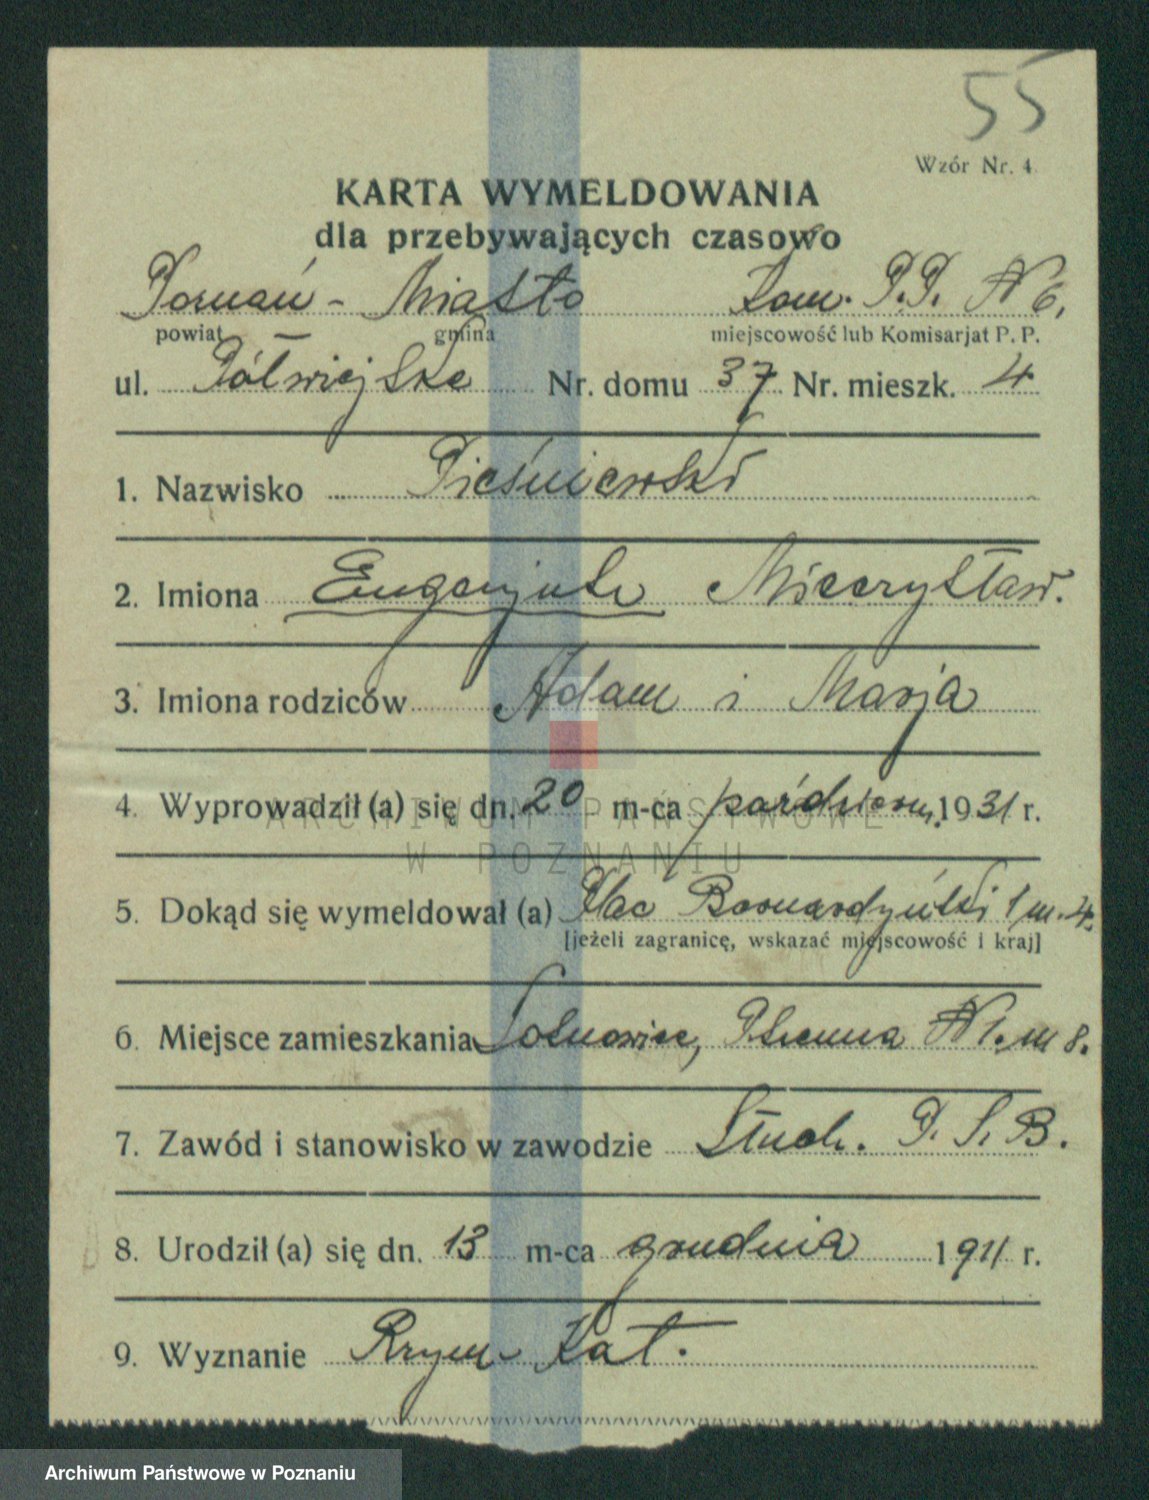 55
Wzór Nr. 4
KARTA WYMELDOWANIA
dla przebywających czasowo
Poznań - Miasto Kom. P.P. N 6,
powiat gmina miejscowość lub Komisarjat P. P.
ul. Półwiejska Nr. domu 37 Nr. mieszk. 4
1. Nazwisko Pieśniewski
2. Imiona Eugenjusz Mieczysław.
3. Imiona rodziców Adam i Marja
4. Wyprowadził (a) się dn. 20 m-ca październ. 1931 r.
ARCHIWUM PAŃSTWOWE
W POZNANIU
5. Dokąd się wymeldował (a) Plac Bernardyński 1 m. 4.
[jeżeli zagranicę, wskazać miejscowość i kraj]
6. Miejsce zamieszkania Sosnowiec, N 1. m 8.
7. Zawód i stanowisko w zawodzie Słuch. P. S. B.
8. Urodził (a) się dn. 13 m-ca grudnia 1911 r.
9. Wyznanie Rzym- Kat.
Archiwum Państwowe w Poznaniu